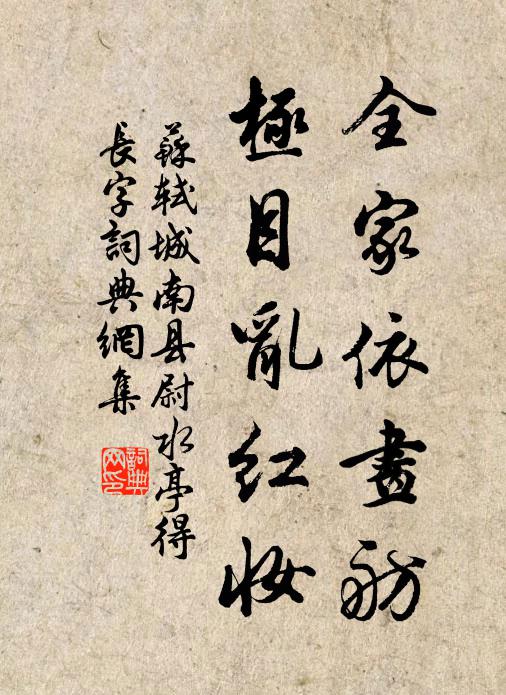 全家依畫舫
極目亂紅妝
蘇軾城南县尉水亭得
長字詞典網集
詞典网印